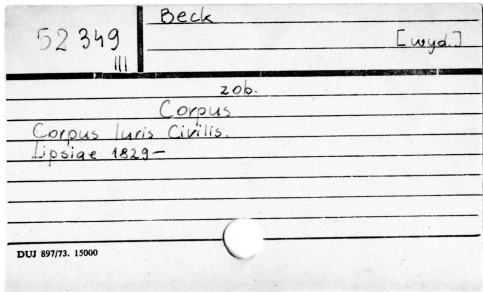 Beck
52 349
[wyd.]
III
zob.
Corpus
Corpus Iuris Civilis.
Lipsiae 1829-
DUJ 897/73. 15000